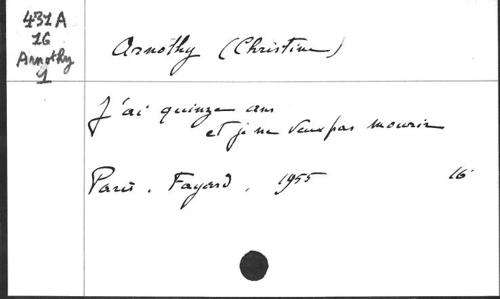 431A
16
Arnothy
1
Arnothy (Christine)
J'ai quinze ans
et je ne veux pas mourir
Paris. Fayard, 1955 16